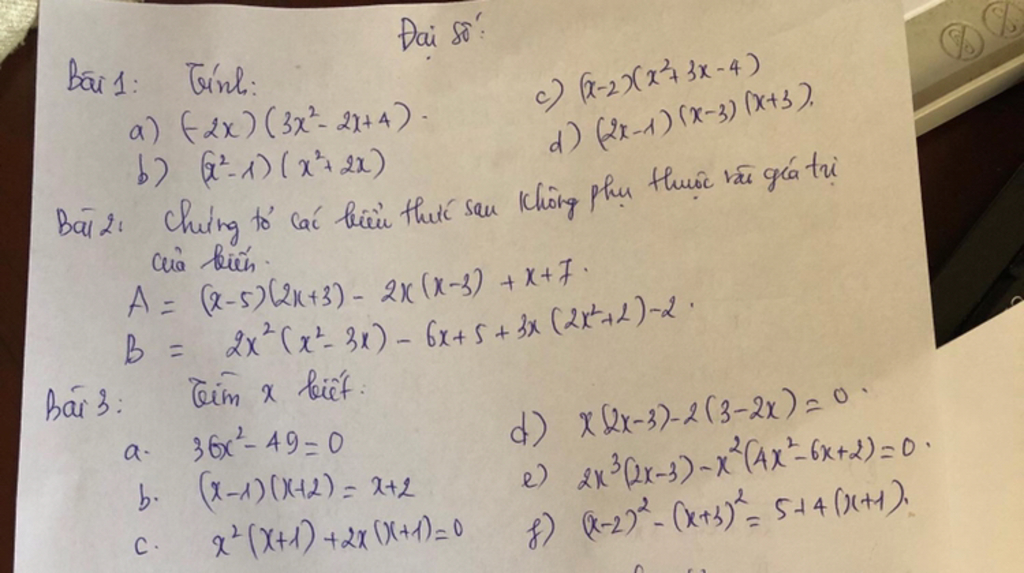 Đại số:
Bài 1: Tính:
a) (-2x)(3x² - 2x + 4).
b) (x² - 1)(x² + 2x)
c) (x-2)(x² + 3x - 4)
d) (2x - 1)(x - 3)(x + 3).
Bài 2: Chứng tỏ các biểu thức sau không phụ thuộc vào giá trị
của biến.
A = (x-5)(2x+3) - 2x(x-3) + x + 7.
B = 2x²(x² - 3x) - 6x + 5 + 3x(2x² + 2) - 2.
Bài 3: Tìm x biết:
a. 36x² - 49 = 0
b. (x-1)(x+2) = x+2
c. x²(x+1) + 2x(x+1) = 0
d) x(2x-3) - 2(3-2x) = 0.
e) 2x³(2x-3) - x²(4x² - 6x + 2) = 0.
f) (x-2)² - (x+3)² = 5 + 4(x+1).